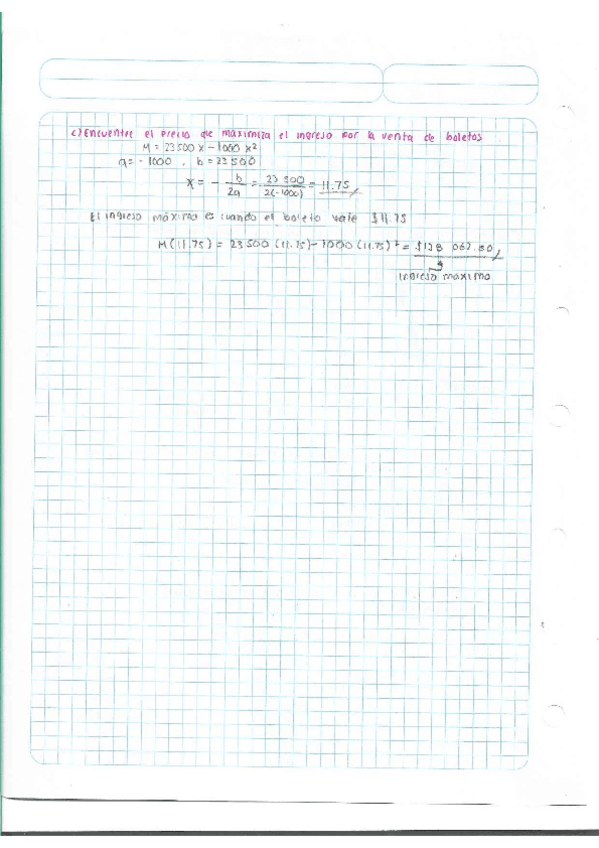 c) Encuentre el precio que maximiza el ingreso por la venta de boletos
M = 23500 x - 1000 x²
a = - 1000 , b = 23500
x = - b/2a = 23 500/2(-1000) = 11.75
El ingreso máximo es cuando el boleto vale $11.75
M(11.75) = 23500 (11.75) - 1000 (11.75)² = $138 062.50
ingreso máximo